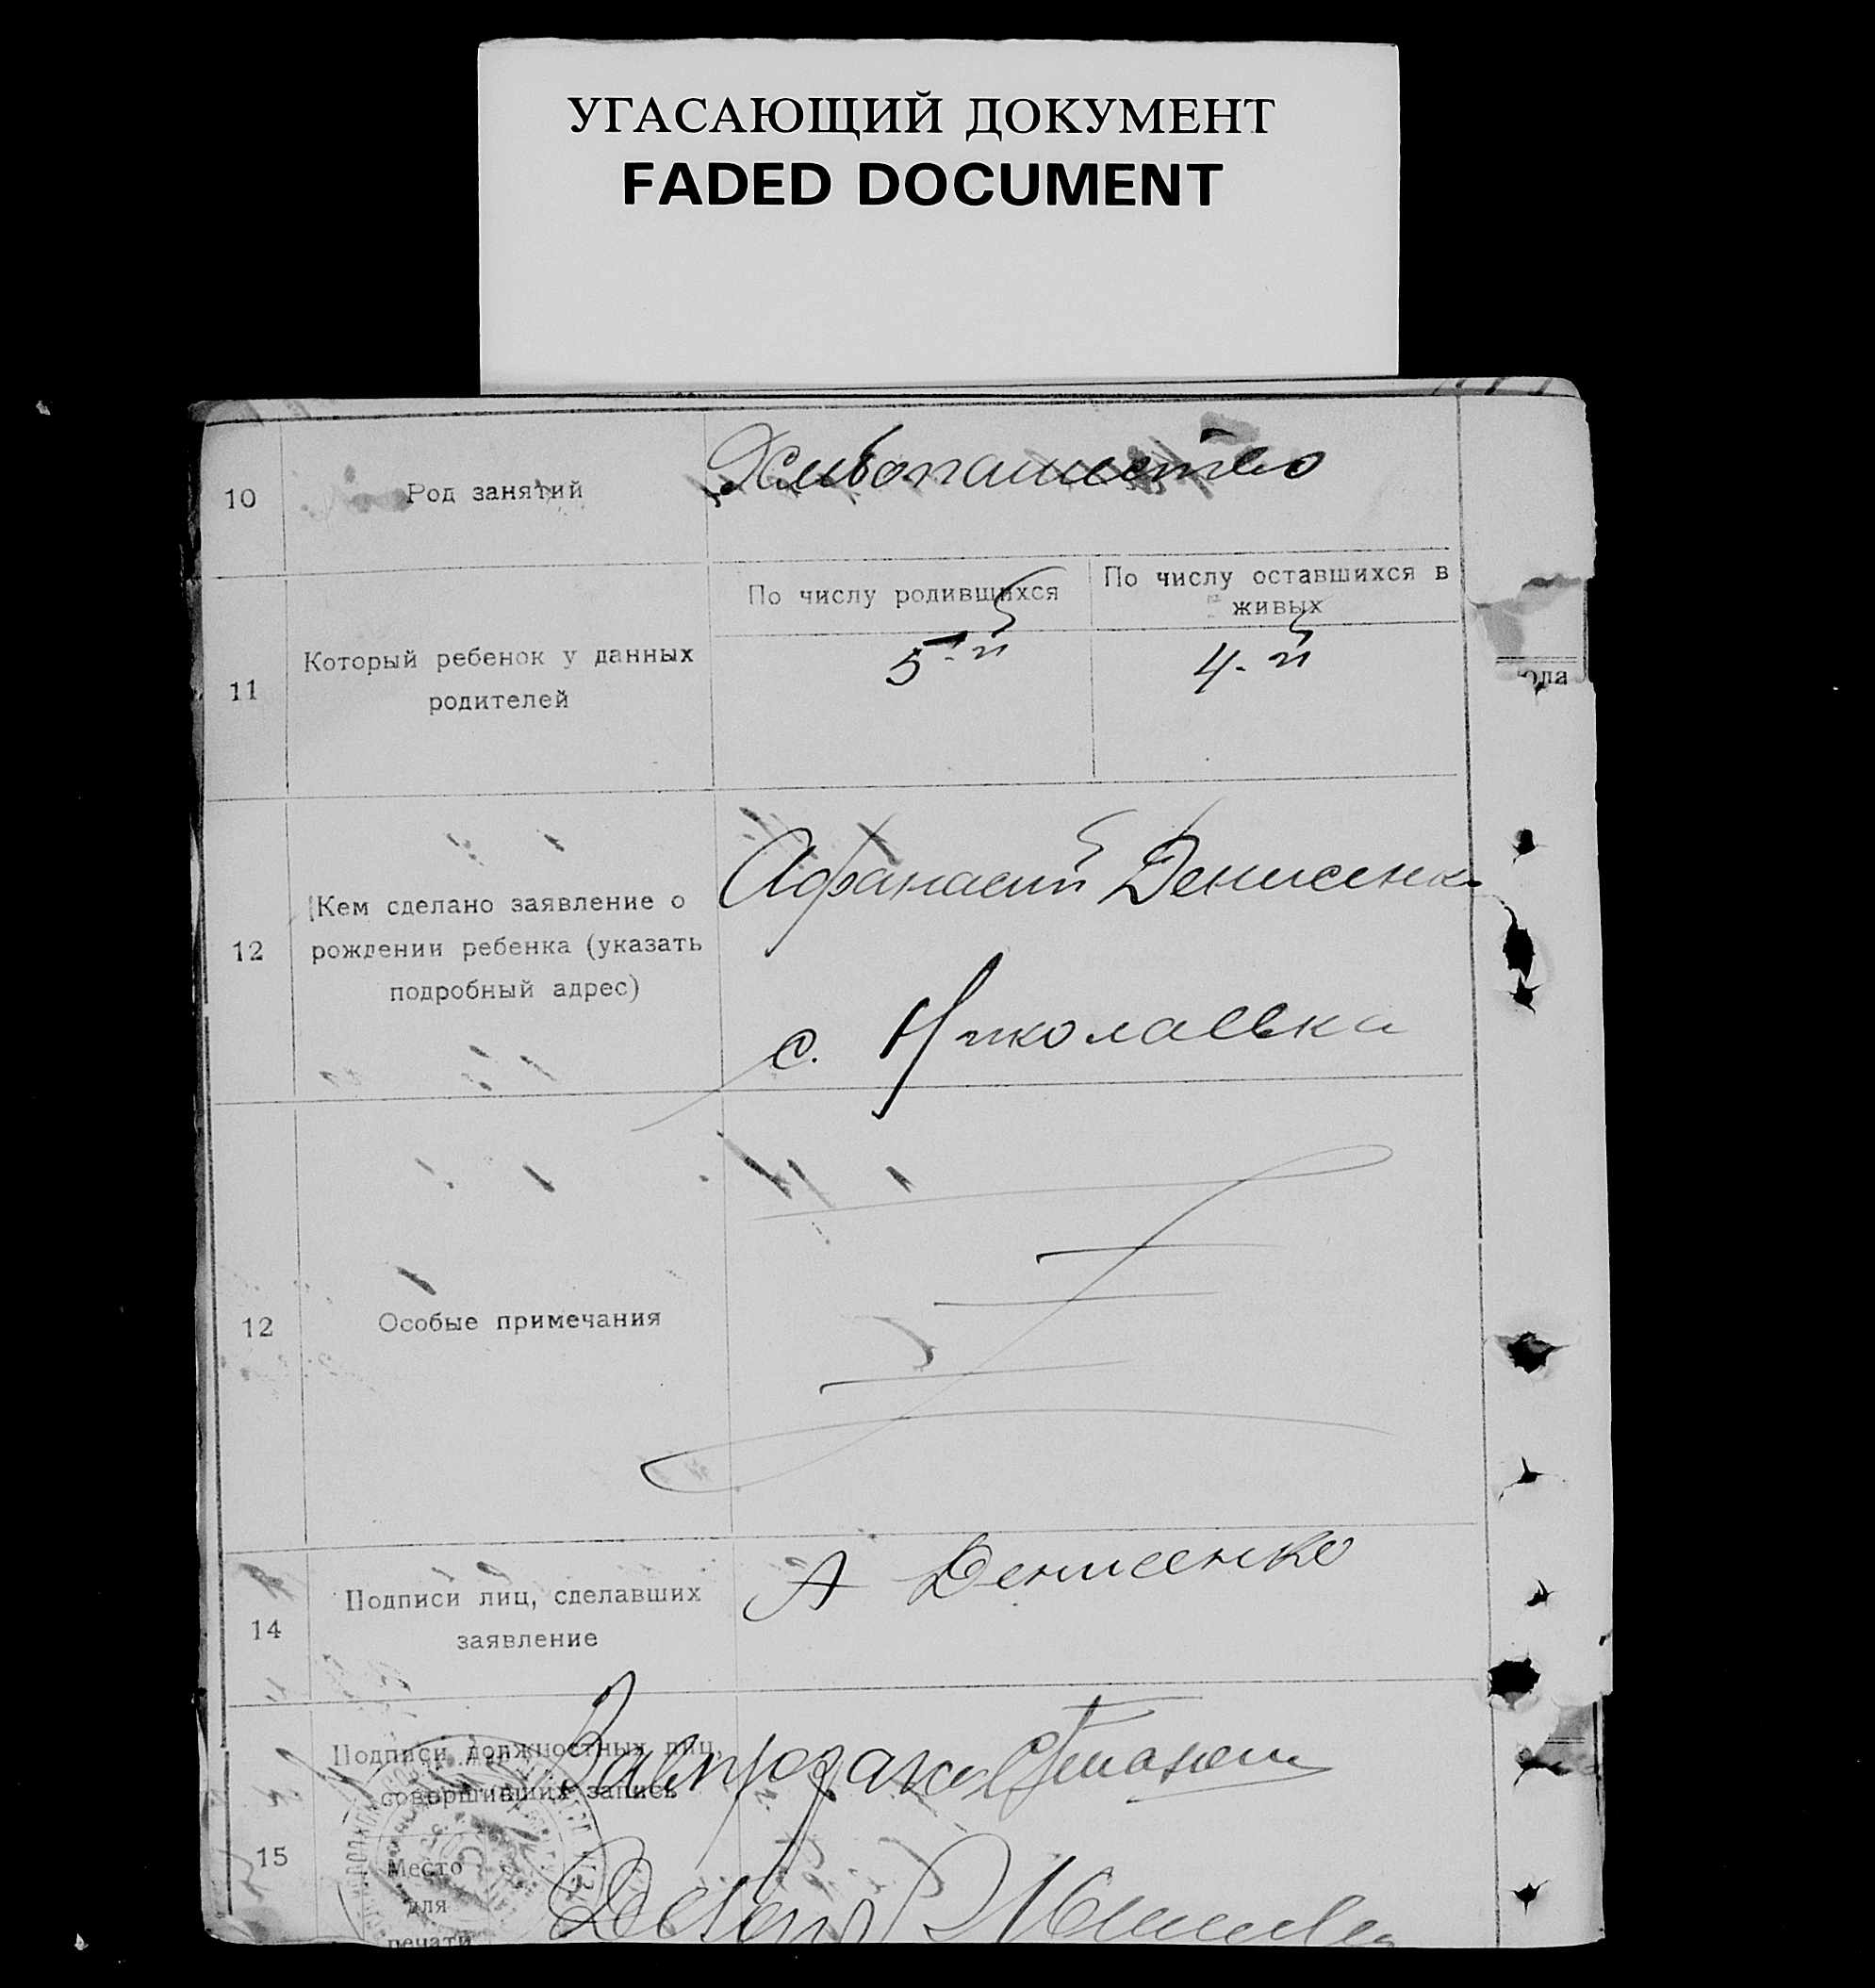 УГАСАЮЩИЙ ДОКУМЕНТ
FADED DOCUMENT
10
Род занятий
Хлебопашество
11
Который ребенок у данных
родителей
По числу родившихся
По числу оставшихся в
живых
5-й
4-й
ода
12
Кем сделано заявление о
рождении ребенка (указать
подробный адрес)
Афанасий Денисенко
с. Николаевка
12
Особые примечания
14
Подписи лиц, сделавших
заявление
А Денисенко
15
Подписи должностных лиц,
совершивших запись
Место
для
печати